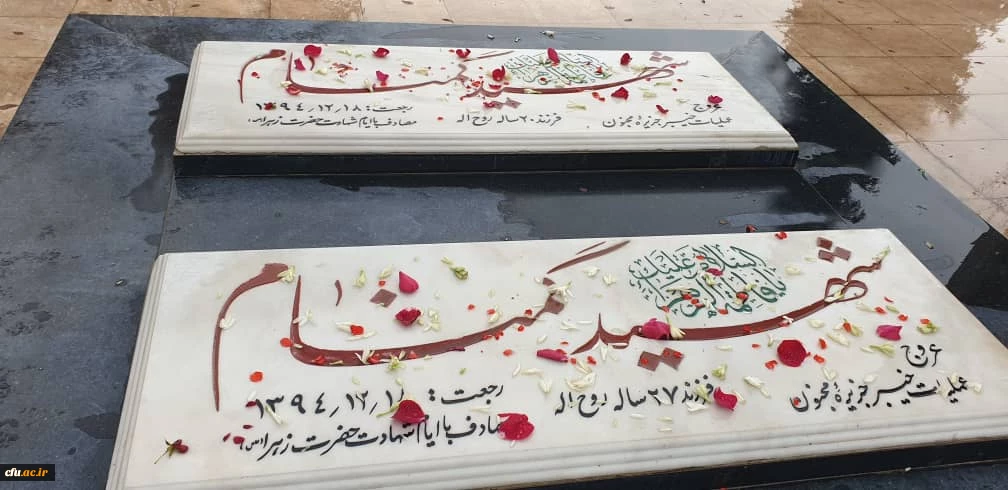 شهید گمنام
السلام علیک یا فاطمة الزهرا
عروج
عملیات خیبر جزیرهٔ مجنون
فرزند ۲۰ ساله روح اله
رجعت: ۱۳۹۴/۱۲/۱۸
مصادف با ایام شهادت حضرت زهرا (س)
شهید گمنام
السلام علیک یا فاطمة الزهرا
عروج
عملیات خیبر جزیرهٔ مجنون
فرزند ۲۷ ساله روح اله
رجعت: ۱۳۹۴/۱۲/۱۸
مصادف با ایام شهادت حضرت زهرا (س)
cfu.ac.ir